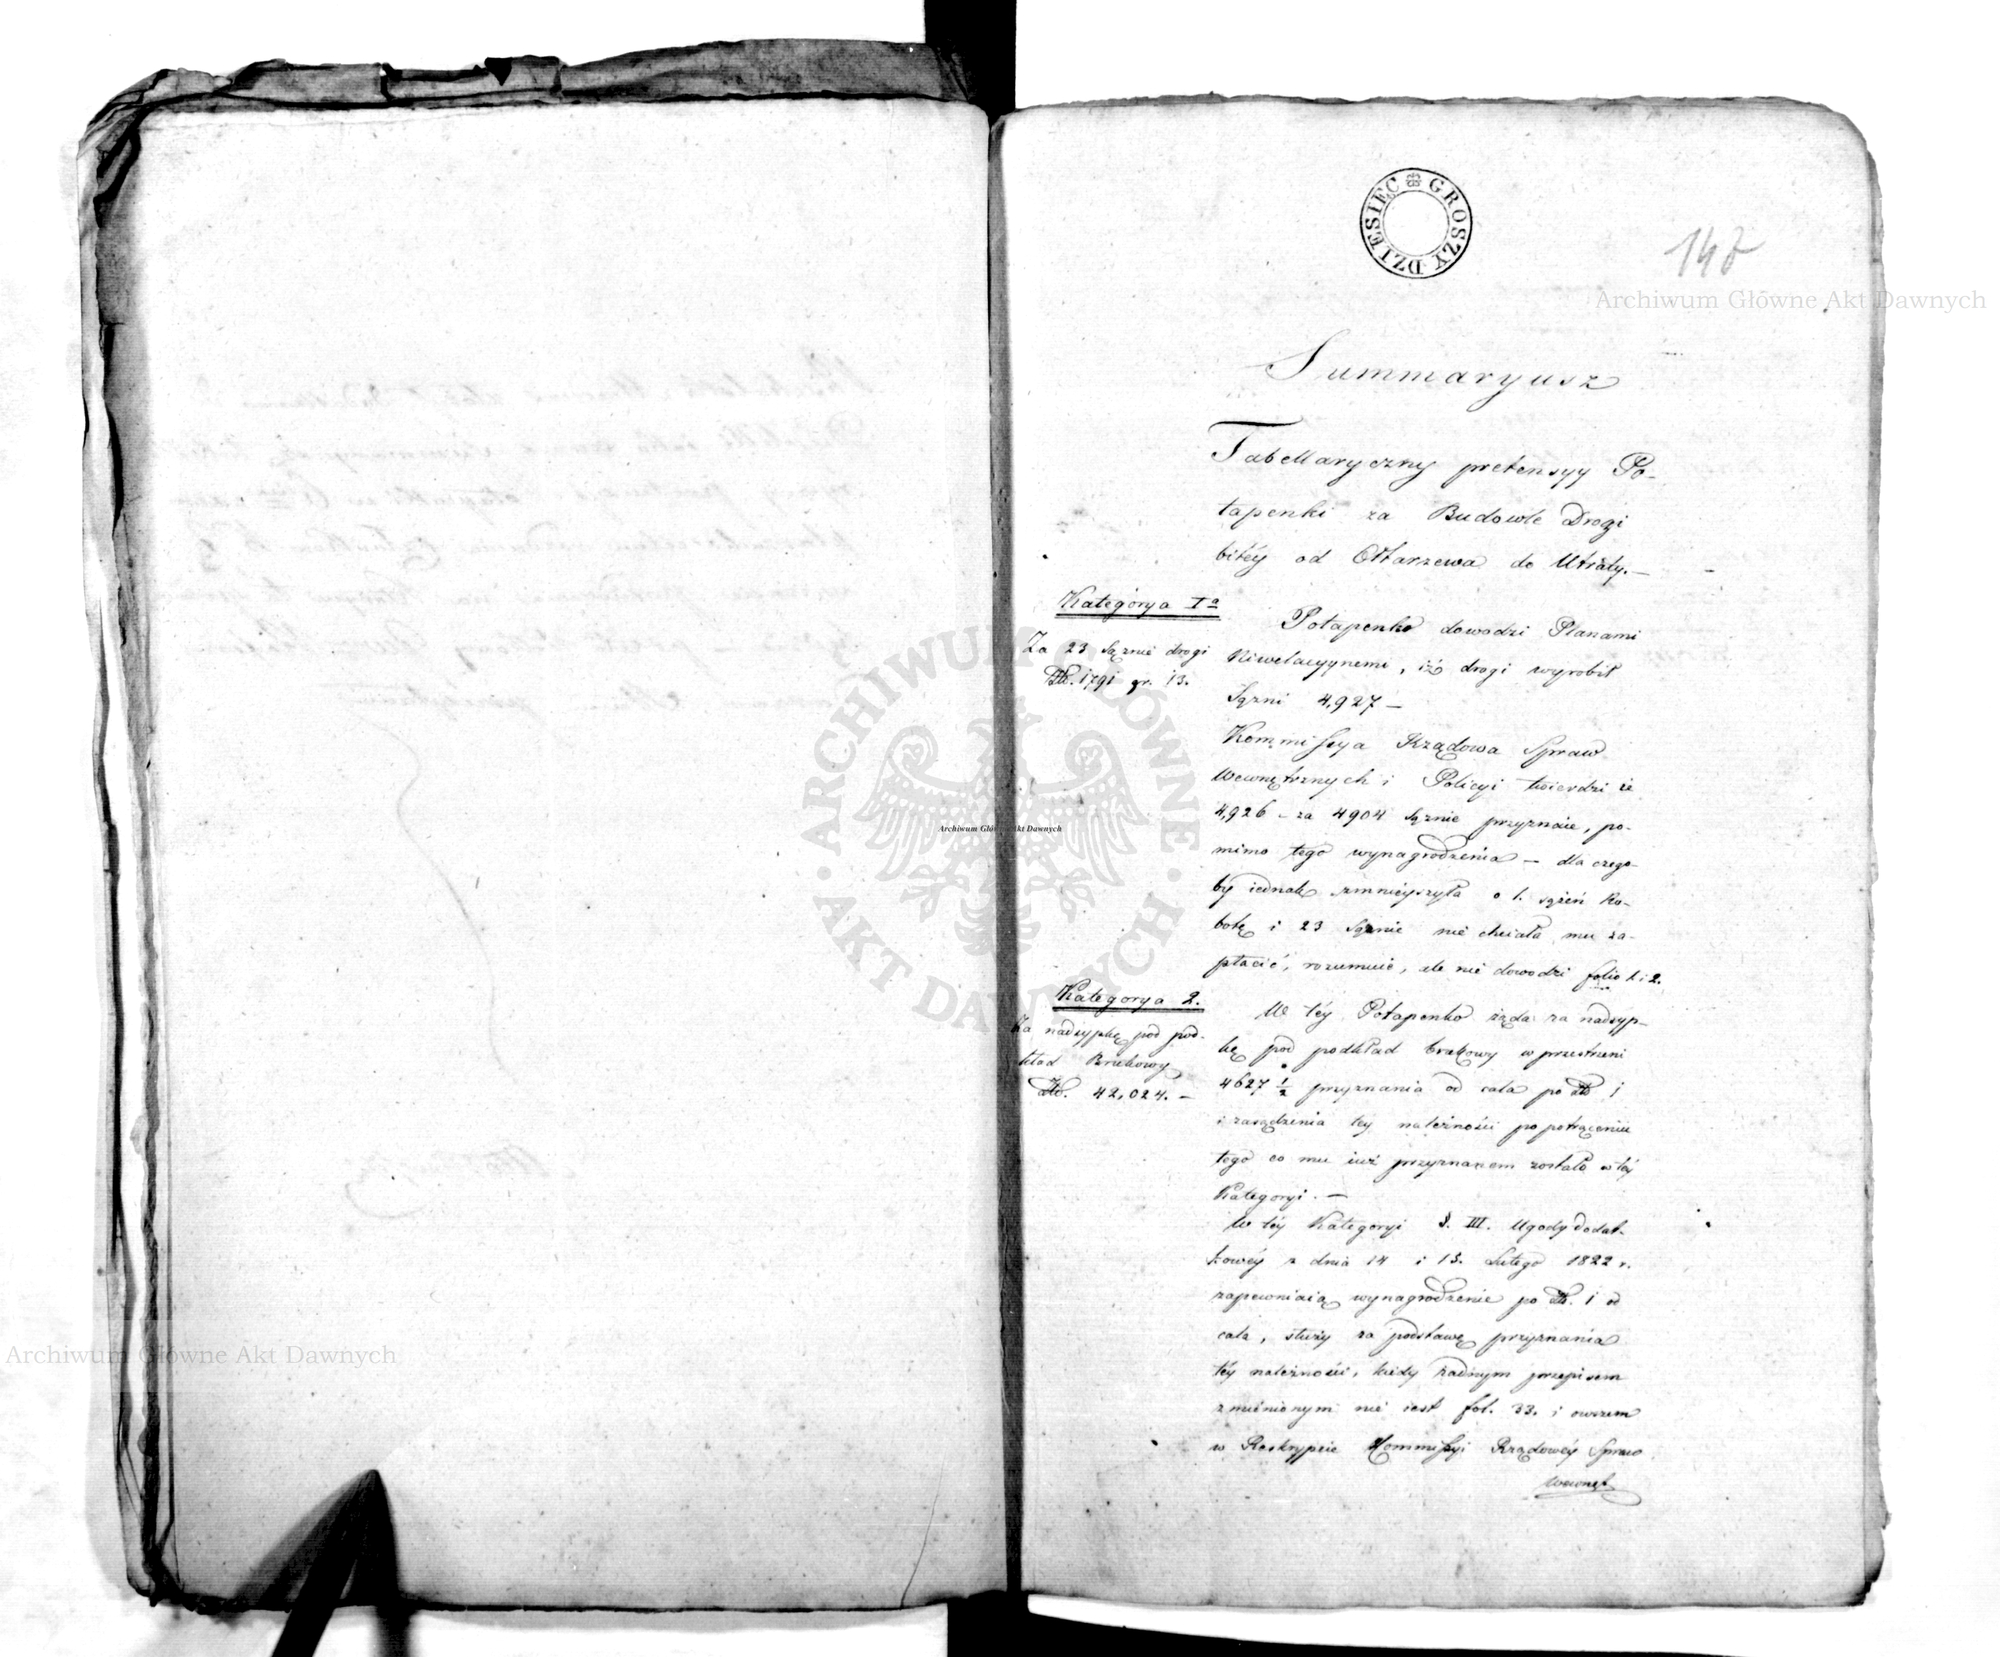 DZIESIĘĆ GROSZY
148
Archiwum Główne Akt Dawnych
Summaryusz
Tabellaryczny pretensyy Po-
tapenki za Budowle Drogi
bitéy od Ołtarzewa do Utraty.—
Kategorya Iª
Za 23 Sążnie drogi
Złł. 1791 gr. 13.
Potapenko dowodzi Planami
Niwelacyynemi, iż drogi wyrobił
Sążni 4,927 —
Kommissya Rządowa Spraw
Wewnętrznych i Policyi twierdzi że
4,926 – za 4904 Sążnie przyznaie, po-
mimo tego wynagrodzenia — dla czego-
by iednak zmnieyszyła o 1. sążeń Ro-
botę i 23 Sążnie nie chciała mu za-
płacić, rozumuie, ale nie dowodzi folio 1 i 2.
Kategorya 2.
Za nadsypkę pod pod-
kład Brukowy
Złł. 42,024. –
W téy Potapenko żąda za nadsyp-
kę pod podkład brukowy w przestrzeni
4627 ½ przyznania od cala po Złł 1
i zasądzenia tey należności po potrąceniu
tego co mu iuż przyznanem zostało w téy
Kategoryi. —
W téy Kategoryi §. III. Ugody Dodat-
kowéy z dnia 14 i 15. Lutego 1822 r.
zapewniaią wynagrodzenie po Złł. 1 od
cala, służy za podstawę przyznania
téy należności, kiedy żadnym przepisem
zmienionym nie iest fol. 33. i owszem
w Reskrypcie Kommissyi Rządowéy Spraw
Wewnęt
ARCHIWUM GŁÓWNE AKT DAWNYCH
Archiwum Główne Akt Dawnych
Archiwum Główne Akt Dawnych